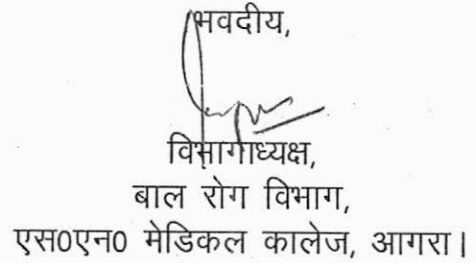 भवदीय,
विभागाध्यक्ष,
बाल रोग विभाग,
एस0एन0 मेडिकल कालेज, आगरा।